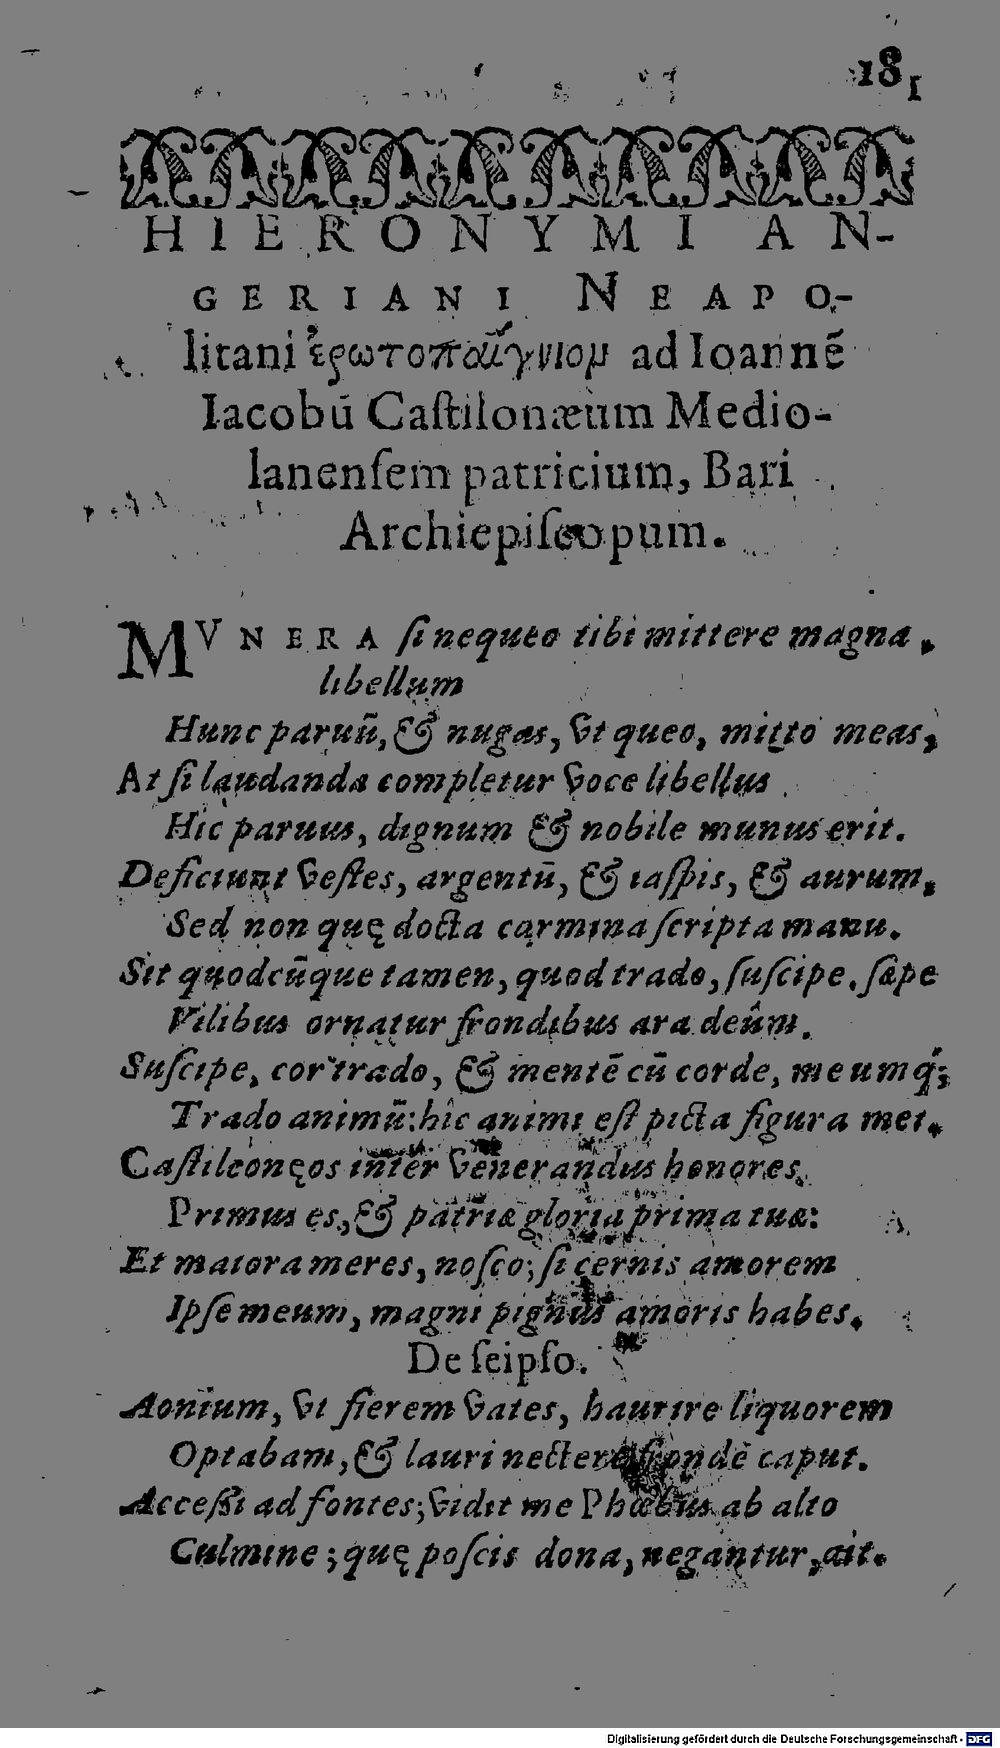 181
HIERONYMI AN-
GERIANI NEAPO-
litani ἐρωτοπαίγνιομ ad Ioannē
Iacobū Caſtilonæum Medio-
lanenſem patricium, Bari
Archiepiſcopum.
MVNERA ſi nequeo tibi mittere magna,
libellum
Hunc paruū, & nugas, vt queo, mitto meas,
At ſi laudanda completur voce libellus
Hic paruus, dignum & nobile munus erit.
Deficiunt veſtes, argentū, & iaſpis, & aurum,
Sed non quę docta carmina ſcripta manu.
Sit quodcūque tamen, quod trado, ſuſcipe. ſæpe
Vilibus ornatur frondibus ara deûm.
Suſcipe, cor trado, & mentē cū corde, meumq́;
Trado animū: hîc animi eſt picta figura mei.
Caſtileonęos inter venerandus honores,
Primus es, & patriæ gloria prima tuæ:
Et maiora meres, noſco; ſi cernis amorem
Ipſe meum, magni pignus amoris habes.
De ſeipſo.
Aonium, vt fierem vates, haurire liquorem
Optabam, & lauri nectere frondē caput.
Acceſſi ad fontes; vidit me Phœbus ab alto
Culmine; quę poſcis dona, negantur, ait.
Digitalisierung gefördert durch die Deutsche Forschungsgemeinschaft - DFG